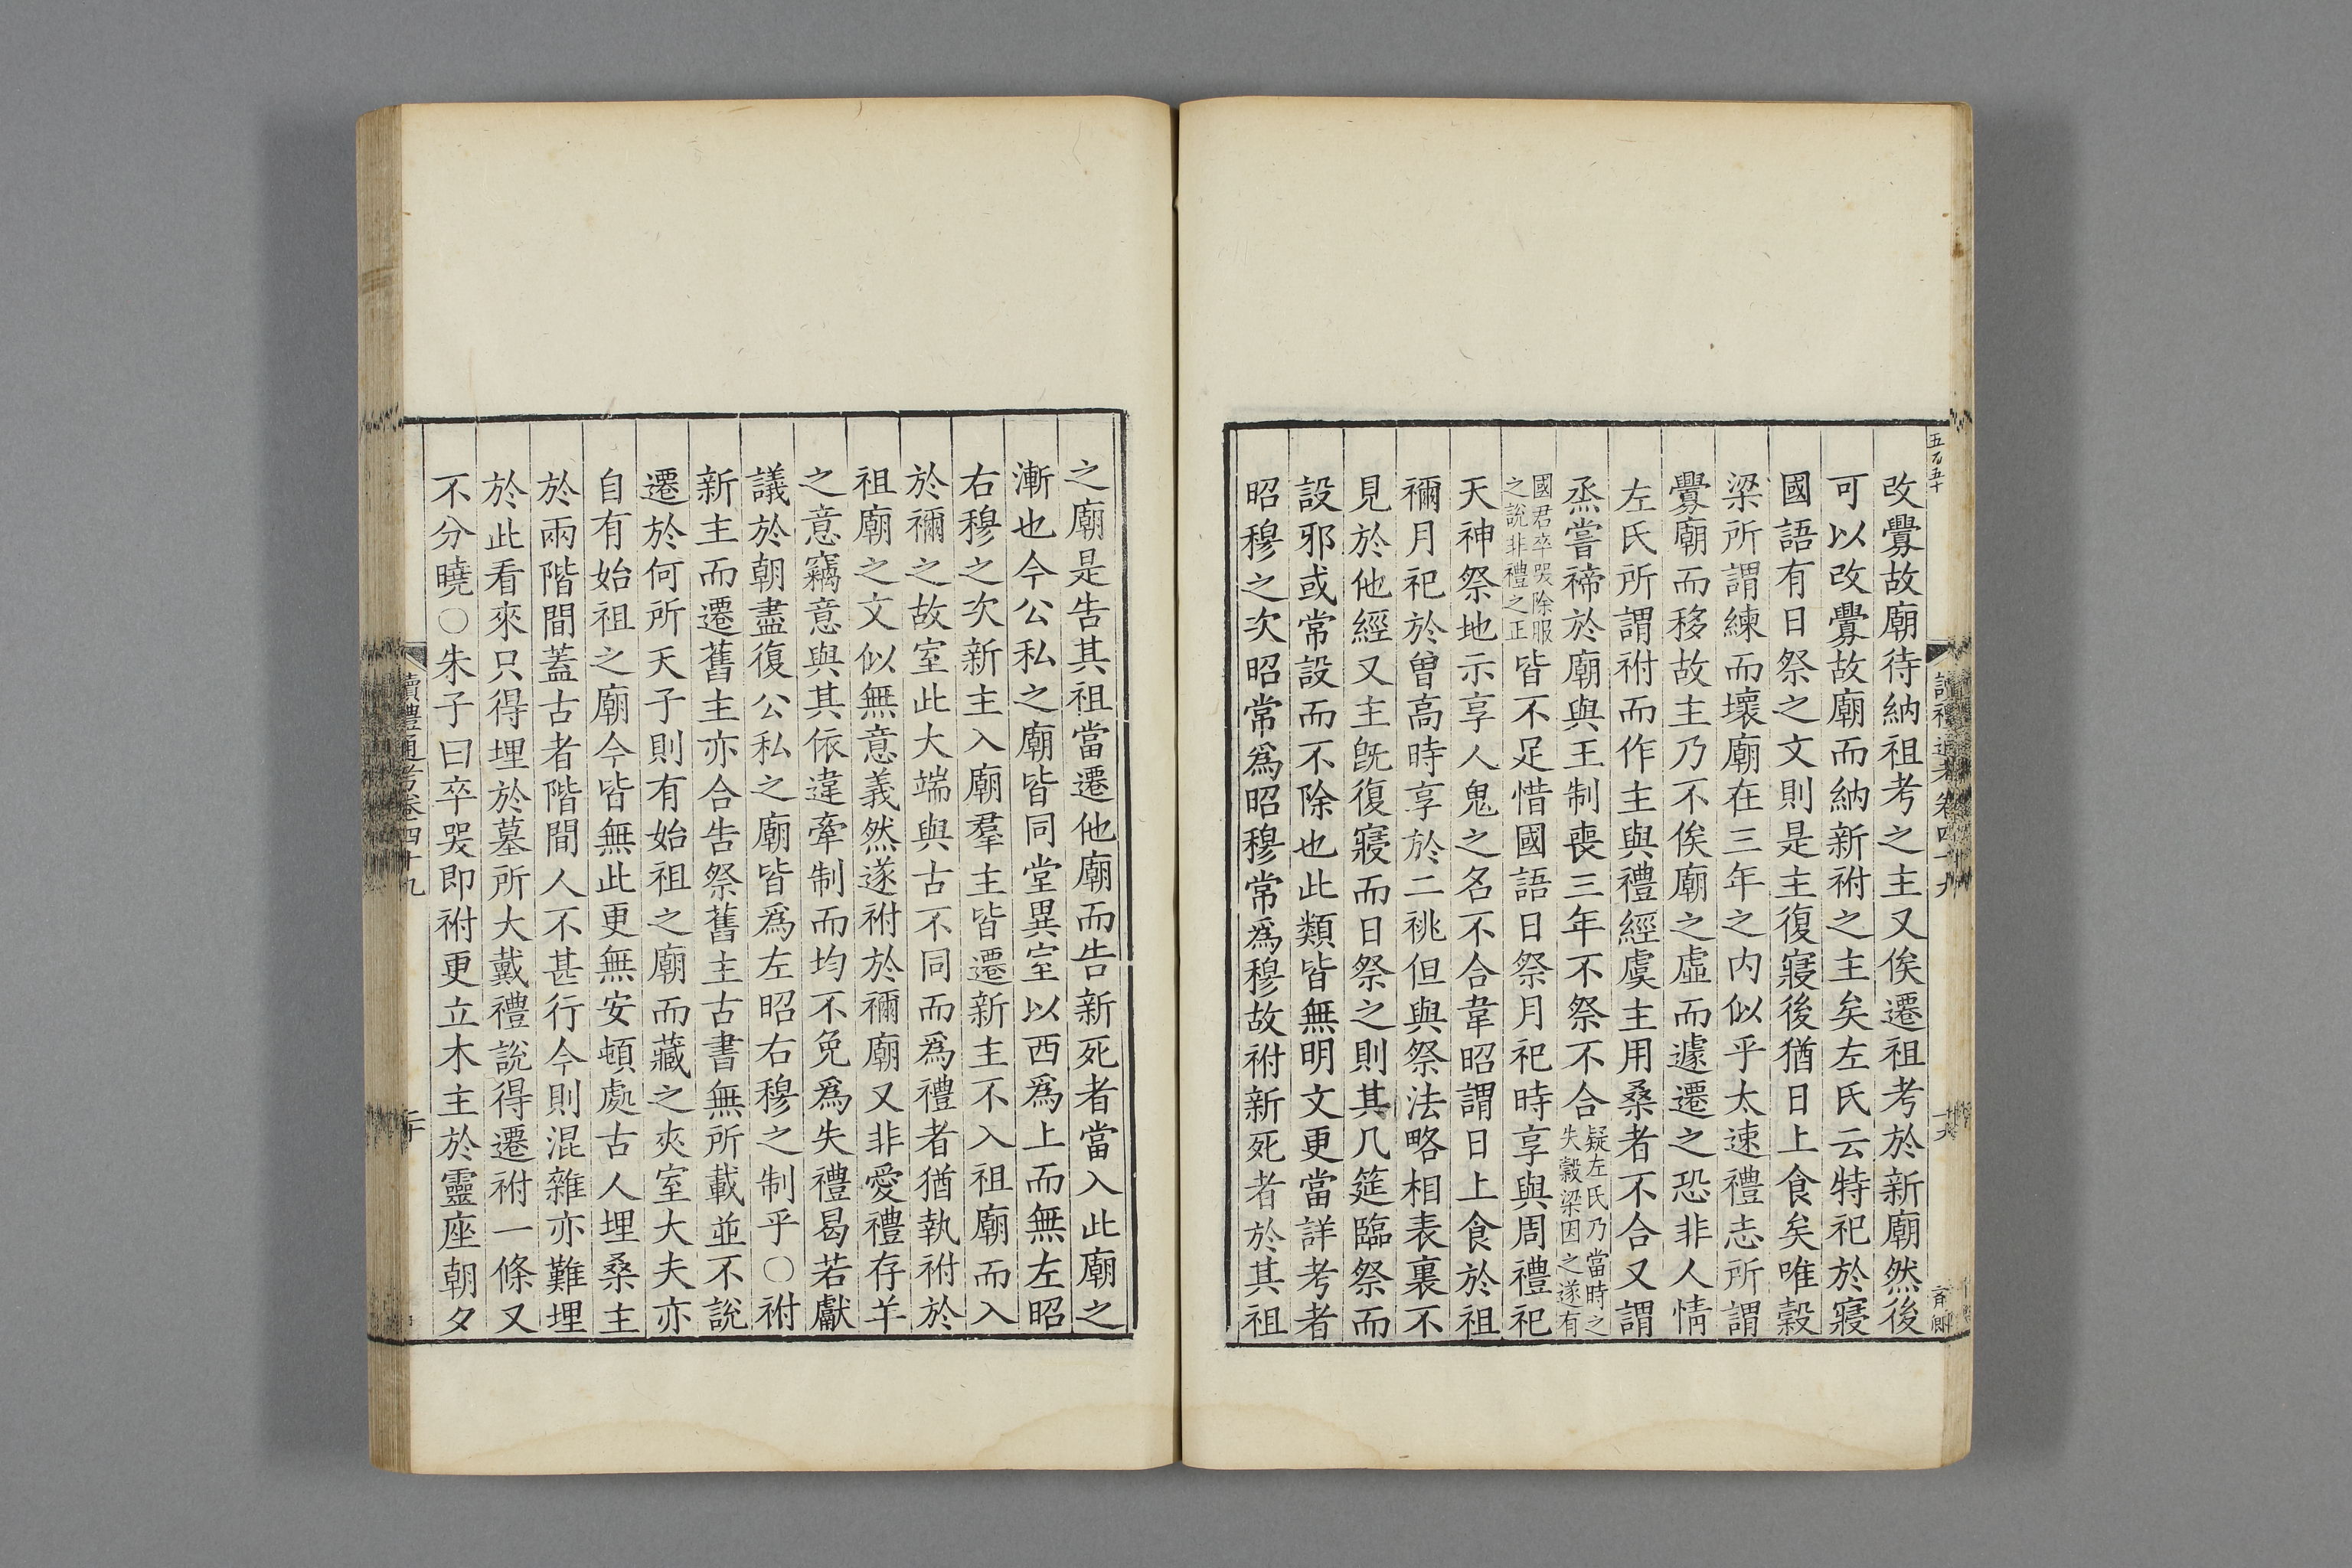 五百五十
讀禮通考卷四十九
十九
改釁故廟待納祖考之主又俟遷祖考於新廟然後
可以改釁故廟而納新祔之主矣左氏云特祀於寢
國語有日祭之文則是主復寢後猶日上食矣唯穀
梁所謂練而壞廟在三年之内似乎太速禮志所謂
釁廟而移故主乃不俟廟之虛而遽遷之恐非人情
左氏所謂祔而作主與禮經虞主用桑者不合又謂
烝嘗禘於廟與王制喪三年不祭不合疑左氏乃當時之失穀梁因之遂有
國君卒哭除服之說非禮之正皆不足惜國語日祭月祀時享與周禮祀
天神祭地示享人鬼之名不合韋昭謂日上食於祖
禰月祀於曾高時享於二祧但與祭法略相表裏不
見於他經又主旣復寢而日祭之則其几筵臨祭而
設邪或常設而不除也此類皆無明文更當詳考者
昭穆之次昭常爲昭穆常爲穆故祔新死者於其祖
之廟是告其祖當遷他廟而告新死者當入此廟之
漸也今公私之廟皆同堂異室以西爲上而無左昭
右穆之次新主入廟羣主皆遷新主不入祖廟而入
於禰之故室此大端與古不同而爲禮者猶執祔於
祖廟之文似無意義然遂祔於禰廟又非愛禮存羊
之意竊意與其依違牽制而均不免爲失禮曷若獻
議於朝盡復公私之廟皆爲左昭右穆之制乎○祔
新主而遷舊主亦合告祭舊主古書無所載並不說
遷於何所天子則有始祖之廟而藏之夾室大夫亦
自有始祖之廟今皆無此更無安頓處古人埋桑主
於兩階間蓋古者階間人不甚行今則混雜亦難埋
於此看來只得埋於墓所大戴禮說得遷祔一條又
不分曉○朱子曰卒哭即祔更立木主於靈座朝夕
讀禮通考卷四十九
二十